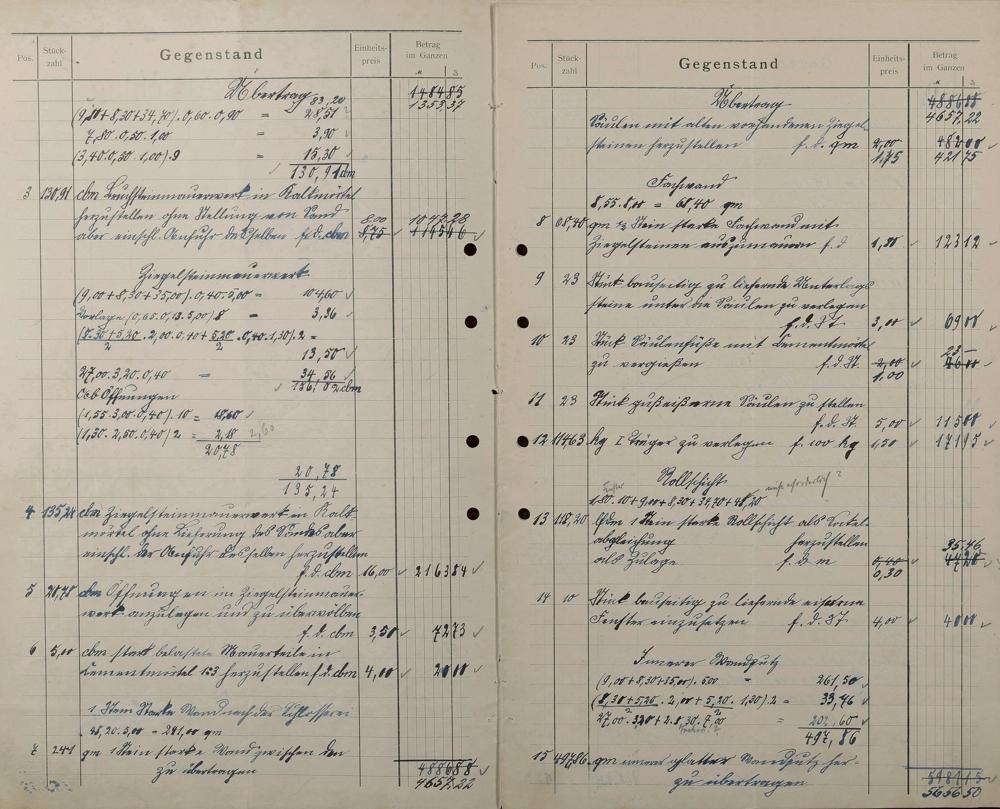 Pos. Stück-zahl Gegenstand Einheits-preis Betrag im Ganzen
Übertrag 1484 85
83,20 1353,37
(9,20 + 8,30 + 34,70) . 0,60 . 0,90 = 28,51
7,80 . 0,50 . 1,00 = 3,90
(3,40 . 0,30 . 1,00) . 9 = 15,30
130,91 cbm
3 130,91 cbm Bruchsteinmauerwerk in Kalkmörtel
herzustellen ohne Stellung von Sand 8,00 1047,28
aber einschl. Anfuhr desselben f. d. cbm 8,75 1145 46
Ziegelsteinmauerwerk
(9,00 + 8,30 + 35,00) . 0,40 . 5,00 = 104,60
Vorlage (0,65 . 0,13 . 5,00) 8 = 3,36
(8,30 + 5,20 . 2,00 . 0,40 + 5,20 . 0,40 . 1,30) . 2 =
2 2
13,50
27,00 . 3,20 . 0,40 = 34,56
156,02 cbm
Ab Öffnungen
(1,55 . 3,00 . 0,40) . 10 = 18,60
(1,30 . 2,50 . 0,40) 2 = 2,18 2,60
20,78
20,78
135,24
4 135,24 cbm Ziegelsteinmauerwerk in Kalk-
mörtel ohne Lieferung des Sandes aber
einschl. der Anfuhr desselben herzustellen
f. d. cbm 16,00 2163 84
5 20,78 cbm Öffnungen in Ziegelsteinmauer-
werk anzulegen und zu überwölben
f. d. cbm 3,50 72 73
6 5,00 cbm stark belastete Mauerteile in
Cementmörtel 1:3 herzustellen f. d. cbm 4,00 20 00
1 Stein starke Wand nach der Schlosserei
48,20 . 5,00 = 241,00 qm
7 241 qm 1 Stein starke Wand zwischen den
zu übertragen 4886 88
4657,22
Pos. Stück-zahl Gegenstand Einheits-preis Betrag im Ganzen
Übertrag 4886 88
4657,22
Säulen mit alten vorhandenen Ziegel-
steinen herzustellen f. d. qm 2,00 482 00
1,75 421 75
Fachwand
8,55 . 8,00 = 68,40 qm
8 68,40 qm ½ Stein starke Fachwand mit
Ziegelsteinen auszumauern f. d 1,80 123 12
9 23 Stück bauseitig zu liefernde Unterlags-
steine unter die Säulen zu verlegen
f. d. St. 3,00 69 00
10 23 Stück Säulenfüße mit Cementmörtel 23 –
zu vergießen f. d. St. 2,00 46 00
1.00
11 23 Stück gußeiserne Säulen zu stellen
f. d. St. 5,00 115 00
12 11463 kg I Träger zu verlegen f. 100 kg 1,50 171 95
Rollschicht
Fenster nicht erforderlich?
1,80 . 10 + 9,00 + 8,30 + 34,70 + 48,20
13 118,20 lfdm 1 Stein starke Rollschicht als Sockel-
abgleichung herzustellen 35,46
als Zulage f. d m 0,40 47 28
0,30
14 10 Stück bauseitig zu liefernde eiserne
Fenster einzusetzen f. d. St. 4,00 40 00
Innerer Wandputz
(9,00 + 8,30 + 35,00) . 5,00 = 261,50
(8,30 + 5,20 . 2,00 + 5,20 . 1,30) . 2 = 33,76
2 2
27,00 . 3,20 + 2 . 8,30 . 7,00 = 202,60
497,86
15 497,86 qm innerer glatter Wandputz her-
zu übertragen 5981 15
5656 50